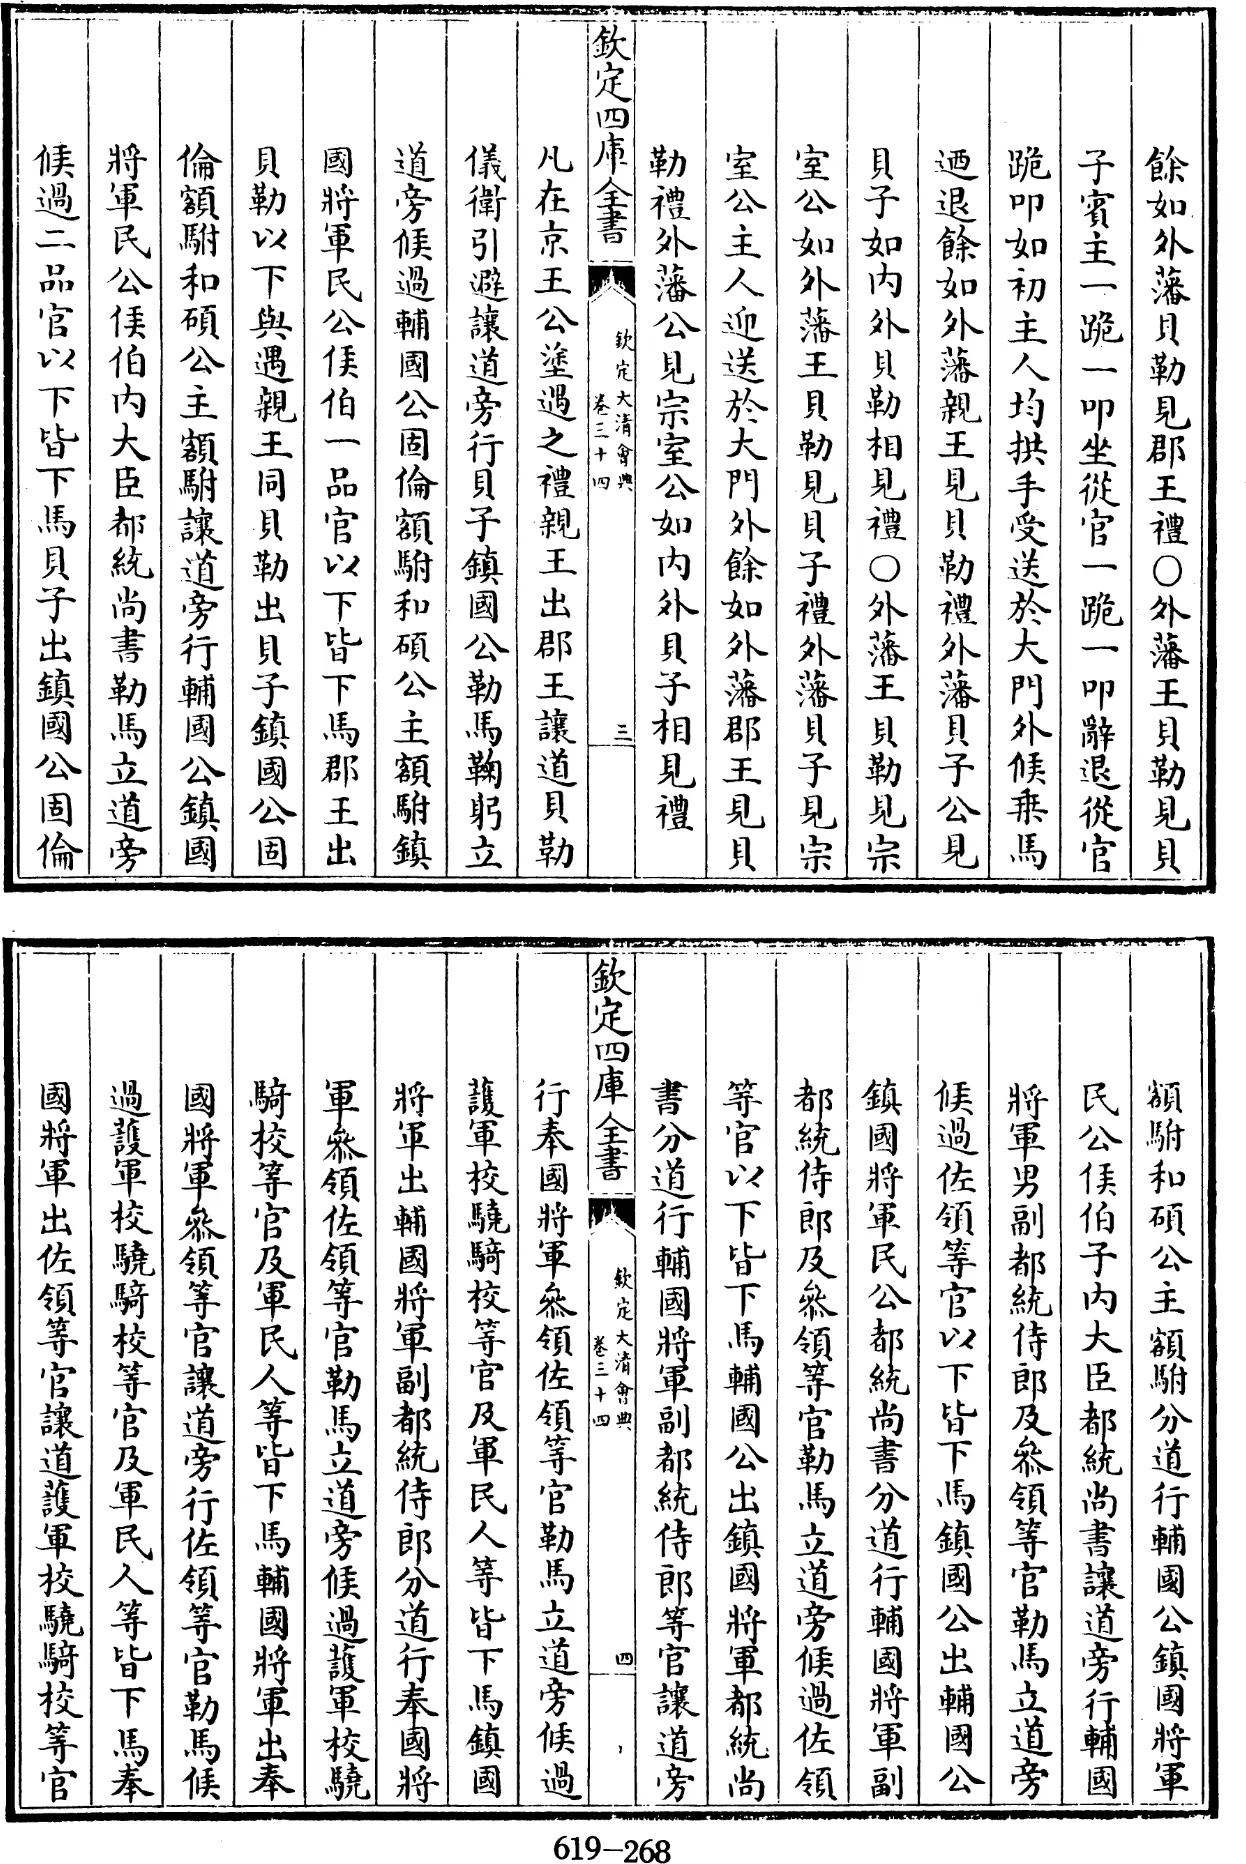 餘如外藩貝勒見郡王禮○外藩王貝勒見貝
子賓主一跪一叩坐從官一跪一叩辭退從官
跪叩如初主人均拱手受送於大門外候乗馬
迺退餘如外藩親王見貝勒禮外藩貝子公見
貝子如内外貝勒相見禮○外藩王貝勒見宗
室公如外藩王貝勒見貝子禮外藩貝子見宗
室公主人迎送於大門外餘如外藩郡王見貝
勒禮外藩公見宗室公如内外貝子相見禮
欽定四庫全書
欽定大清會典
卷三十四
三
凡在京王公塗遇之禮親王出郡王讓道貝勒
儀衛引避讓道旁行貝子鎮國公勒馬鞠躬立
道旁候過輔國公固倫額駙和碩公主額駙鎮
國將軍民公侯伯一品官以下皆下馬郡王出
貝勒以下與遇親王同貝勒出貝子鎮國公固
倫額駙和碩公主額駙讓道旁行輔國公鎮國
將軍民公侯伯内大臣都統尚書勒馬立道旁
候過二品官以下皆下馬貝子出鎮國公固倫
額駙和碩公主額駙分道行輔國公鎮國將軍
民公侯伯子内大臣都統尚書讓道旁行輔國
將軍男副都統侍郎及叅領等官勒馬立道旁
候過佐領等官以下皆下馬鎮國公出輔國公
鎮國將軍民公都統尚書分道行輔國將軍副
都統侍郎及叅領等官勒馬立道旁候過佐領
等官以下皆下馬輔國公出鎮國將軍都統尚
書分道行輔國將軍副都統侍郎等官讓道旁
欽定四庫全書
欽定大清會典
卷三十四
四
行奉國將軍叅領佐領等官勒馬立道旁候過
護軍校驍騎校等官及軍民人等皆下馬鎮國
將軍出輔國將軍副都統侍郎分道行奉國將
軍叅領佐領等官勒馬立道旁候過護軍校驍
騎校等官及軍民人等皆下馬輔國將軍出奉
國將軍叅領等官讓道旁行佐領等官勒馬候
過護軍校驍騎校等官及軍民人等皆下馬奉
國將軍出佐領等官讓道護軍校驍騎校等官
619-268